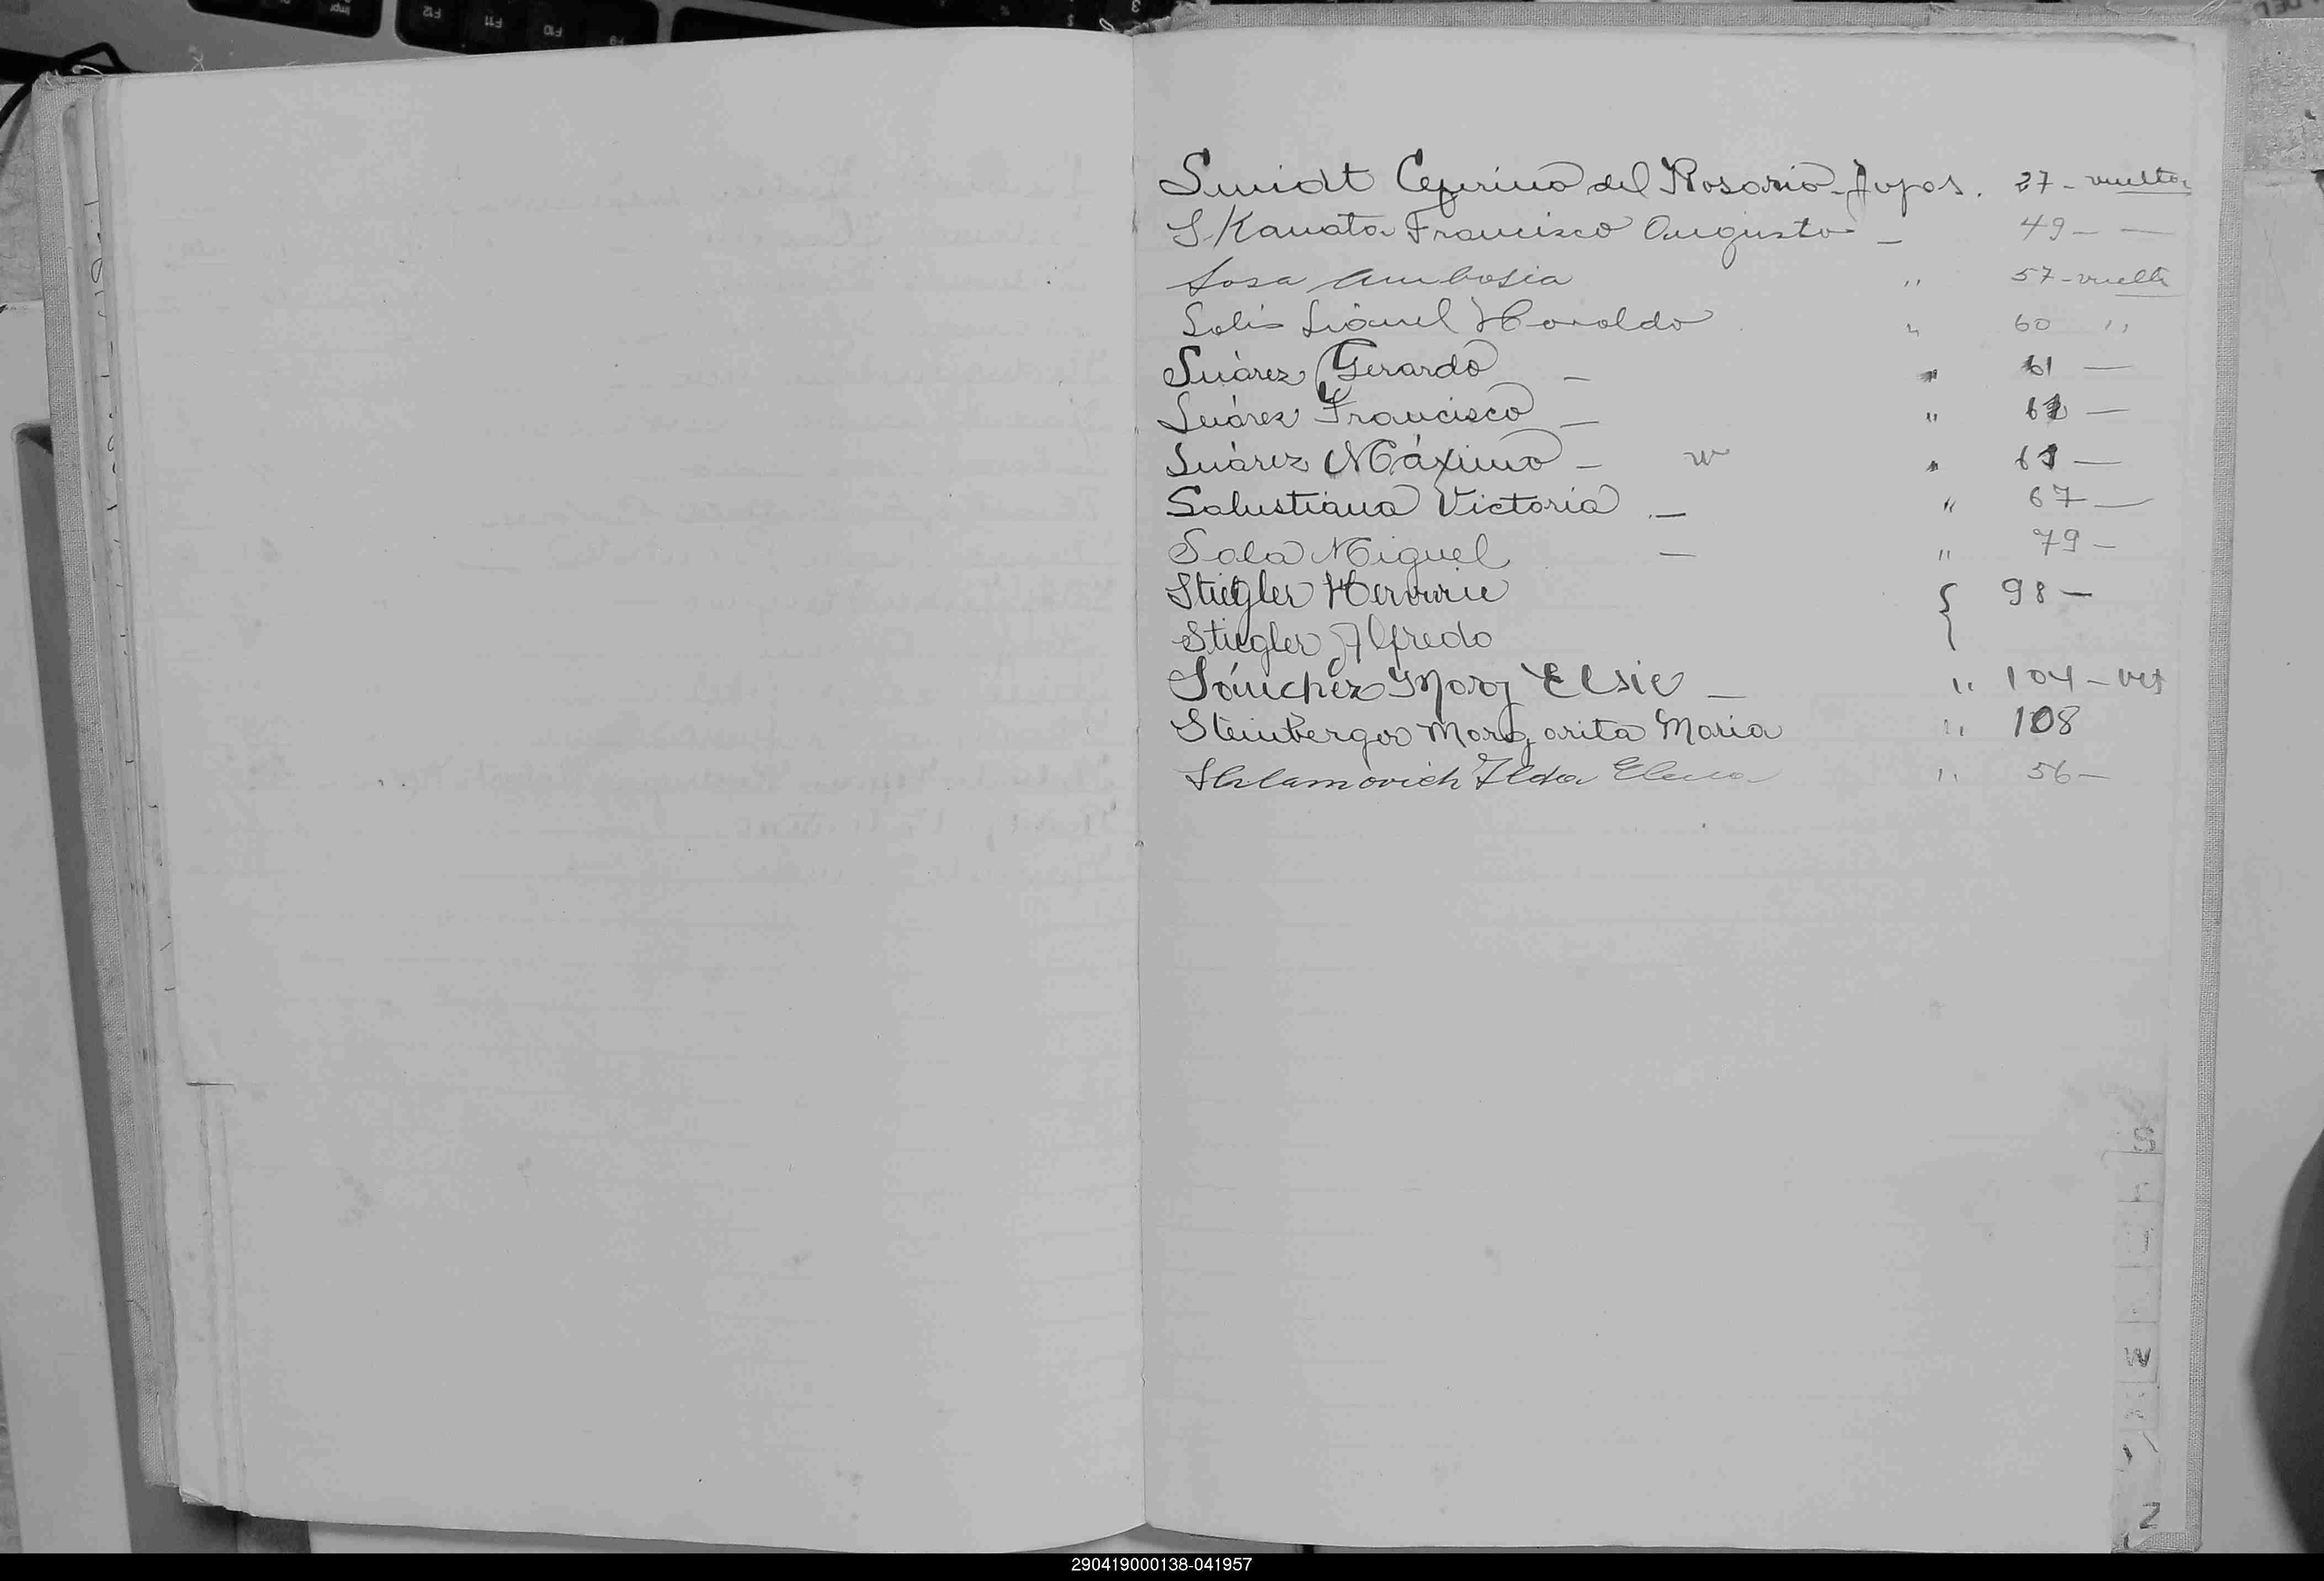 Smidt Ceferino del Rosario - Fojas. 27 - vuelta
S/Kanata Francisco Augusto - 49 - —
Sosa Ambosia " 57 - vuelta
Solis Lionel Haroldo " 60 "
Suárez Gerardo - " 61 —
Suárez Francisco - " 62 —
Suárez Máximo - " 63 —
Salustiana Victoria - " 67 —
Sala Miguel - " 79 -
Stiegler Herminie { 98 -
Stiegler Alfredo
Sánchez Mary Elsie - " 104 -
Steinberger Margarita Maria " 108
Shlamovich Ilda Elena " 56 -
S
Z
290419000138-041957